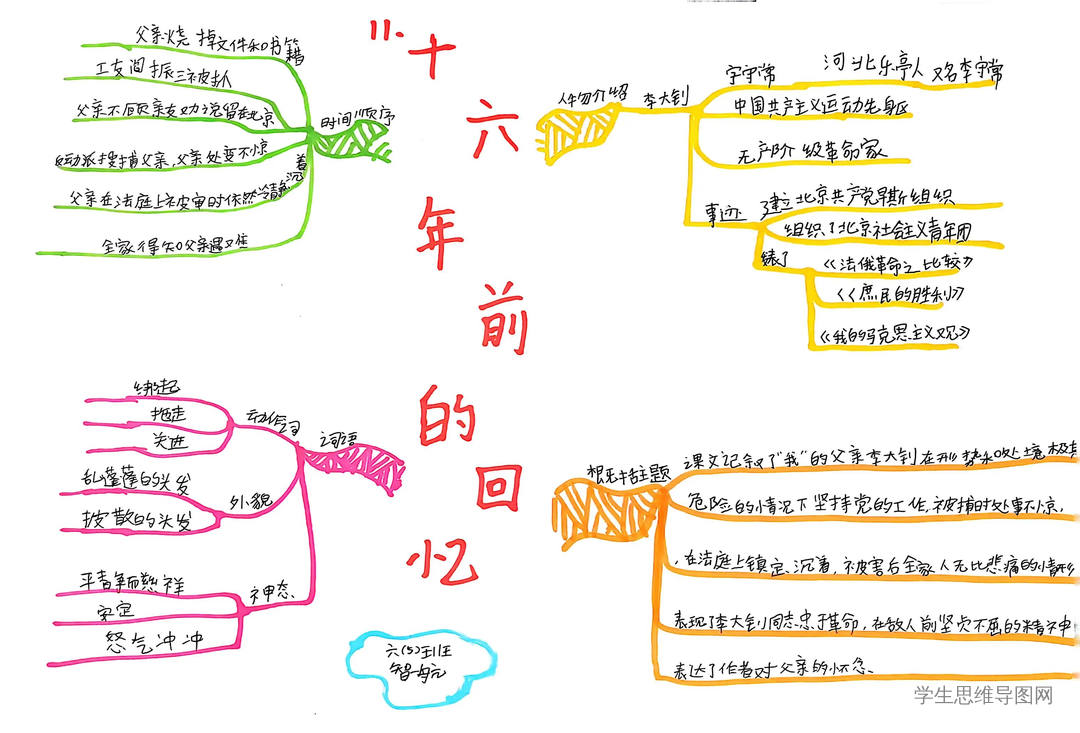 11.十六年前的回忆
时间顺序
父亲烧掉文件和书籍
工友阎振三被抓
父亲不顾亲友劝说留在北京
父亲处变不惊
父亲在法庭上被审时依然冷静沉着
全家得知父亲遇难
人物介绍
李大钊
字守常
河北乐亭人
又名李守常
中国共产主义运动先驱
无产阶级革命家
事迹
建立北京共产党早期组织
组织了北京社会主义青年团
发表了
《法俄革命之比较》
《庶民的胜利》
《我的马克思主义观》
词语
动作词
绑起
拖走
关进
外貌
乱蓬蓬的头发
披散的头发
神态
平静而慈祥
安定
怒气冲冲
概括主题
课文记叙了"我"的父亲李大钊在形势和处境极其
危险的情况下坚持党的工作,被捕时处事不惊,
,在法庭上镇定、沉着,被害后全家人无比悲痛的情形
表现了李大钊同志忠于革命,在敌人前坚贞不屈的精神
表达了作者对父亲的怀念、
六(5)班
学生思维导图网